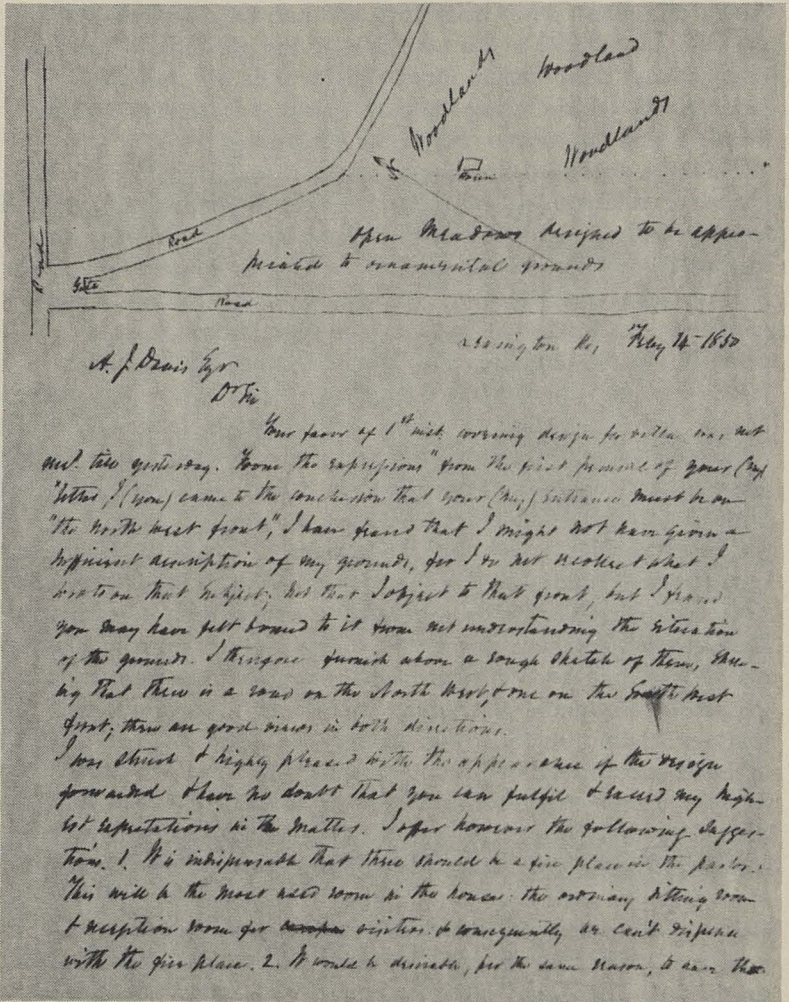 Woodlands
Woodland
Woodlands
House
Road
Road
Gate
Road
Open Meadows designed to be appro-
priated to ornamental grounds
Lexington Ky, Feby 14 1850
A. J. Davis Esqr
Dr Sir
Your favor of 1st inst. covering design for villa was not
recd. till yesterday. From the expressions "from the first perusal of your (my)
"letter I (you) came to the conclusion that your (my) Entrance must be on
"the north west front", I have feared that I might not have given a
sufficient description of my grounds, for I do not recollect what I
wrote on that subject; not that I object to that front, but I feared
you may have felt bound to it from not understanding the situation
of the grounds. I therefore furnish above a rough sketch of them, show-
ing that there is a road on the North West, & one on the South West
front; there are good views in both directions.
I was struck & highly pleased with the appearance of the design
forwarded & have no doubt that you can fulfil & exceed my high-
est expectations in the matter. I offer however the following sugges-
tions. 1. It is indispensable that there should be a fire place in the parlor.
This will be the most used room in the house: the ordinary sitting room
& reception room for visitors & consequently we can't dispense
with the fire place. 2. It would be desirable, for the same reason, to have the